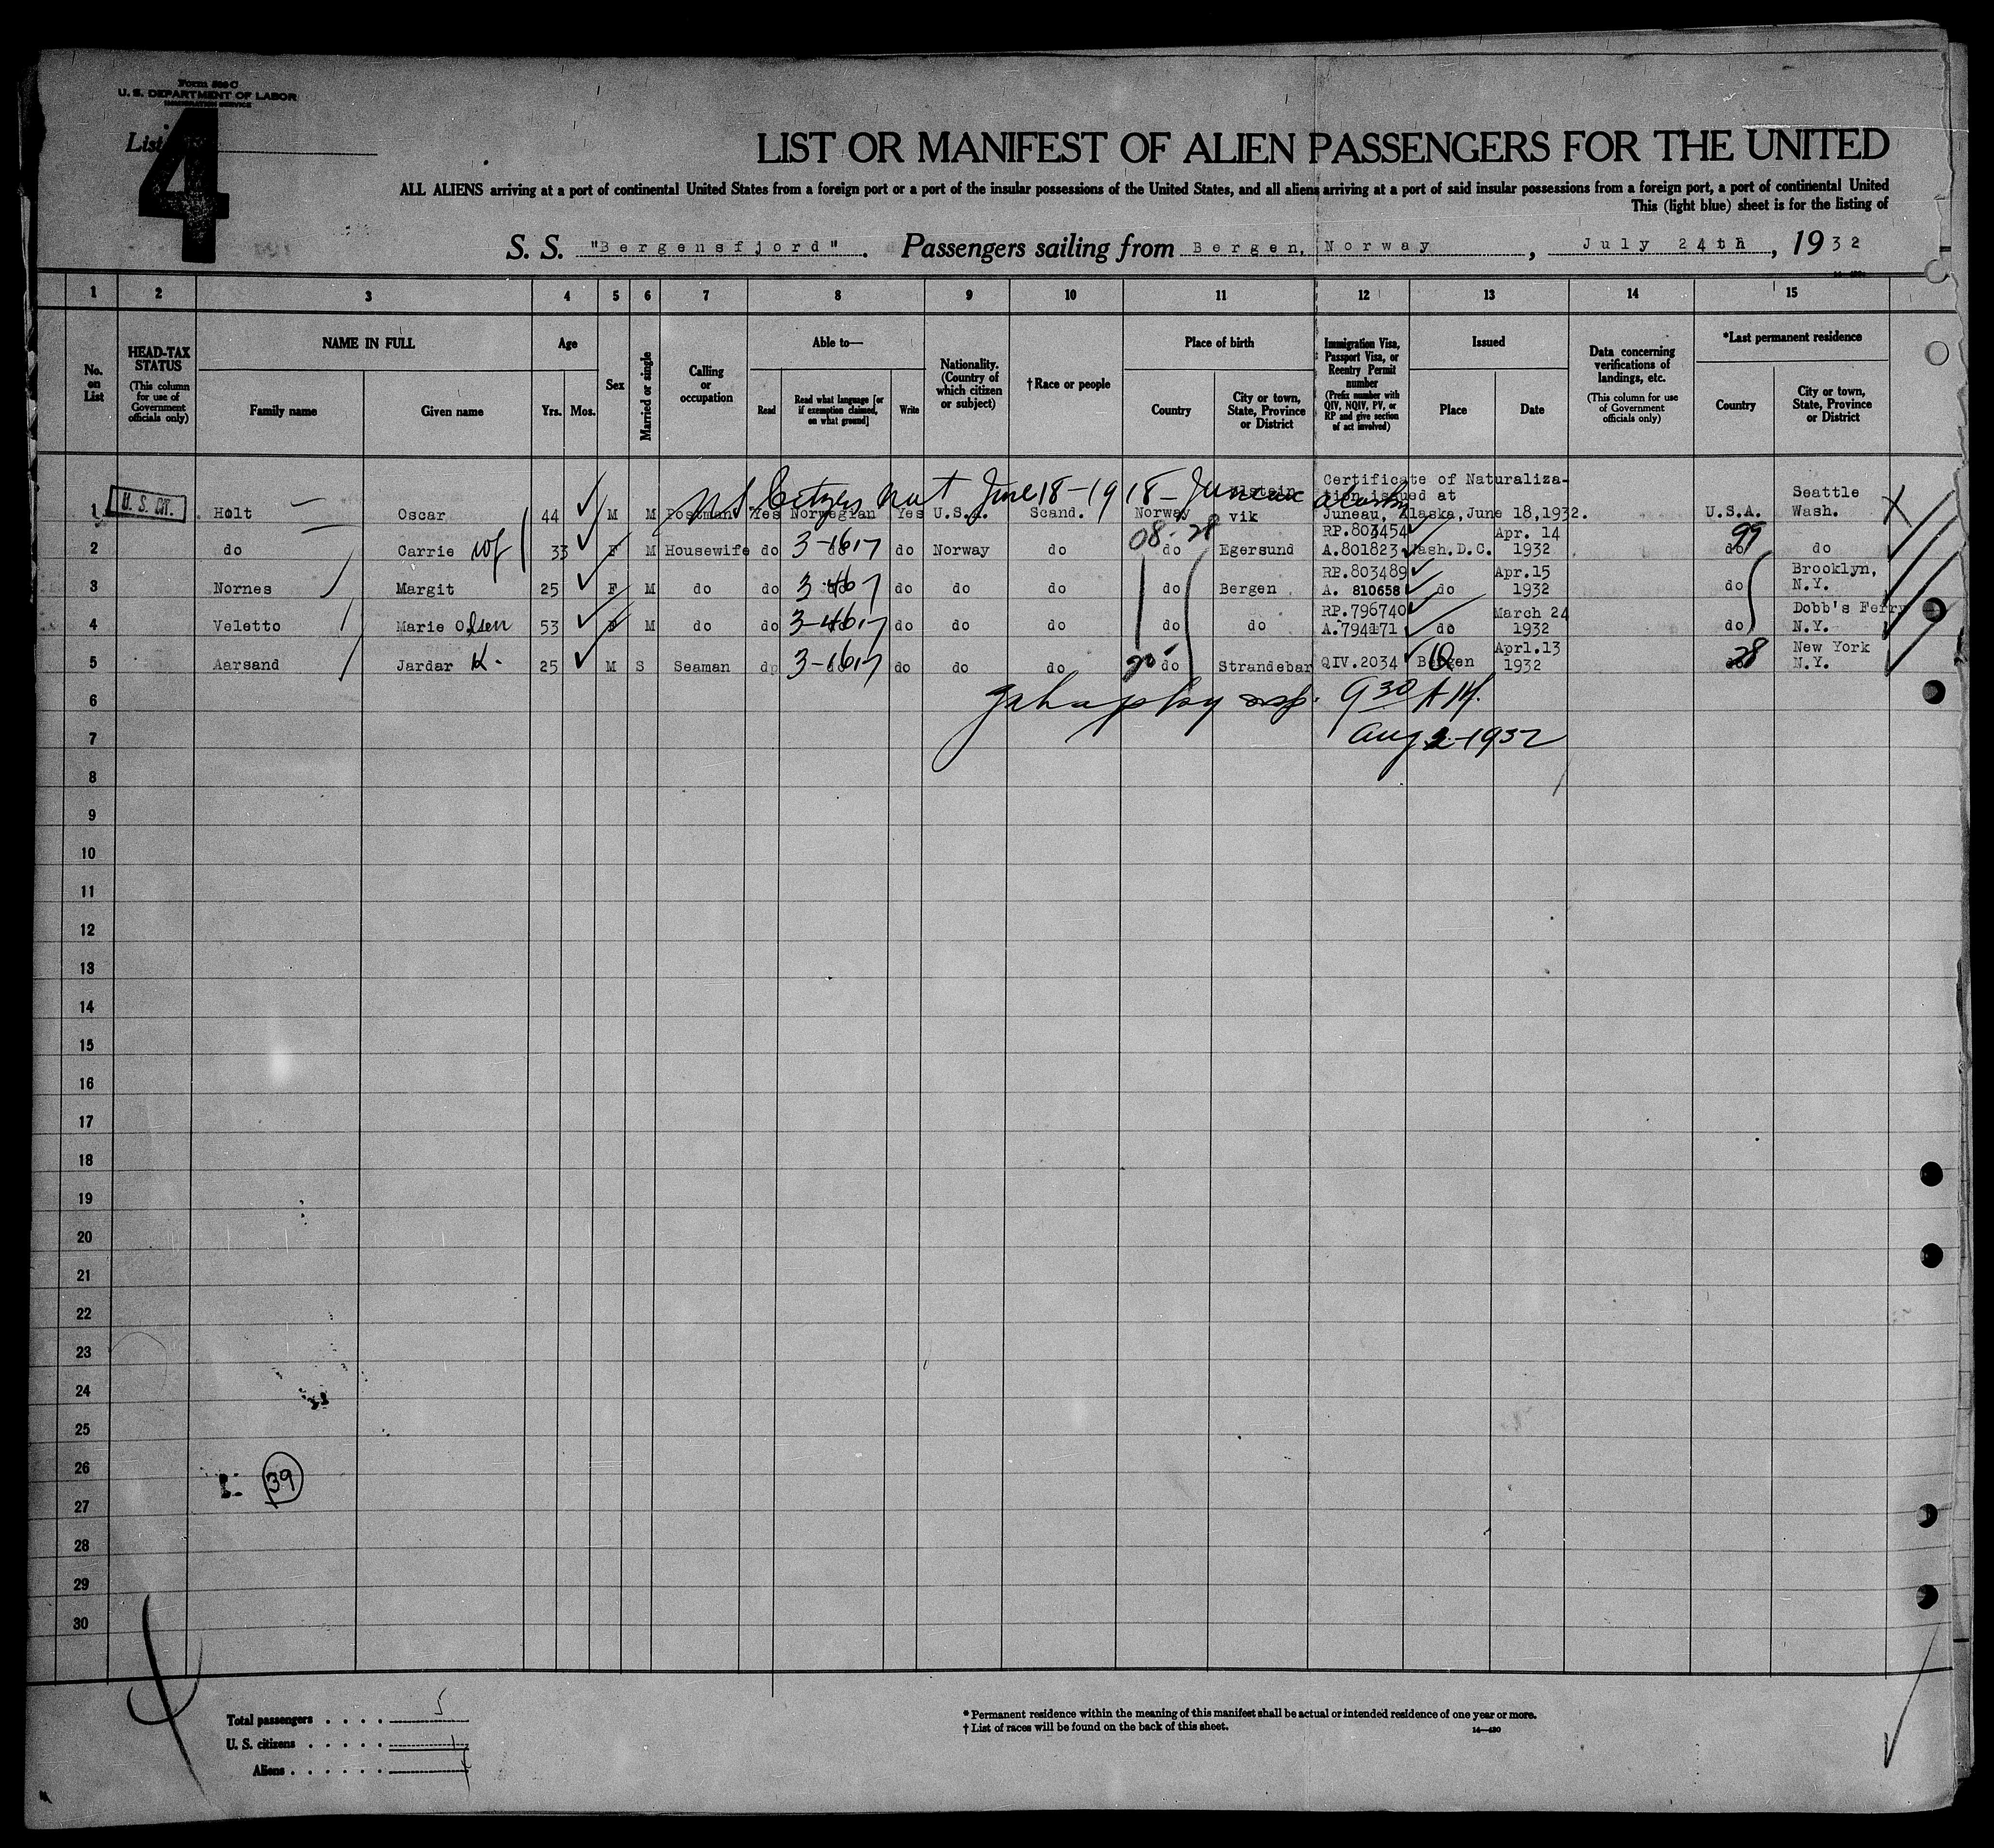 Form 500 C
U. S. DEPARTMENT OF LABOR
IMMIGRATION SERVICE
List
4
LIST OR MANIFEST OF ALIEN PASSENGERS FOR THE UNITED
ALL ALIENS arriving at a port of continental United States from a foreign port or a port of the insular possessions of the United States, and all aliens arriving at a port of said insular possessions from a foreign port, a port of continental United
This (light blue) sheet is for the listing of
S. S. "Bergensfjord". Passengers sailing from Bergen, Norway, July 24th, 1932
1 2 3 4 5 6 7 8 9 10 11 12 13 14 15
No. on List
HEAD-TAX STATUS (This column for use of Government officials only)
NAME IN FULL Family name Given name
Age Yrs. Mos.
Sex
Married or single
Calling or occupation
Able to— Read Read what language [or if exemption claimed, on what ground] Write
Nationality. (Country of which citizen or subject)
†Race or people
Place of birth Country City or town, State, Province or District
Immigration Visa, Passport Visa, or Reentry Permit number (Prefix number with QIV, NQIV, PV, or RP and give section of act involved)
Issued Place Date
Data concerning verifications of landings, etc. (This column for use of Government officials only)
*Last permanent residence Country City or town, State, Province or District
U.S. Citizen Nat June 18-1918- Juneau Alaska
1 U.S. CIT. Holt Oscar 44 M M Postman Yes Norwegian Yes U.S.A. Scand. Norway vik Certificate of Naturalization issued at Juneau, Alaska, June 18,1932. U.S.A. Seattle Wash.
08-28
2 do Carrie wf 33 F M Housewife do 3-1617 do Norway do do Egersund RP.803454 A.801823 Wash.D.C. Apr. 14 1932 99 do do
3 Nornes Margit 25 F M do do do do do do Bergen RP.803489 A. 810658 do Apr.15 1932 do Brooklyn, N.Y.
4 Veletto Marie Olsen 53 F M do do do do do do do RP.796740 A.794171 do March 24 1932 do Dobb's Ferry N.Y.
5 Aarsand Jardar K. 25 M S Seaman do 3-1617 do do do do Strandebar QIV.2034 Bergen Aprl.13 1932 28 New York N.Y.
6 insp. 9 30 A.M.
7 Aug 2-1932
8
9
10
11
12
13
14
15
16
17
18
19
20
21
22
23
24
25
26
39
27
28
29
30
Total passengers . . . . 5
U. S. citizens . . . . . 1
Aliens . . . . . . 4
* Permanent residence within the meaning of this manifest shall be actual or intended residence of one year or more.
† List of races will be found on the back of this sheet.
14—430